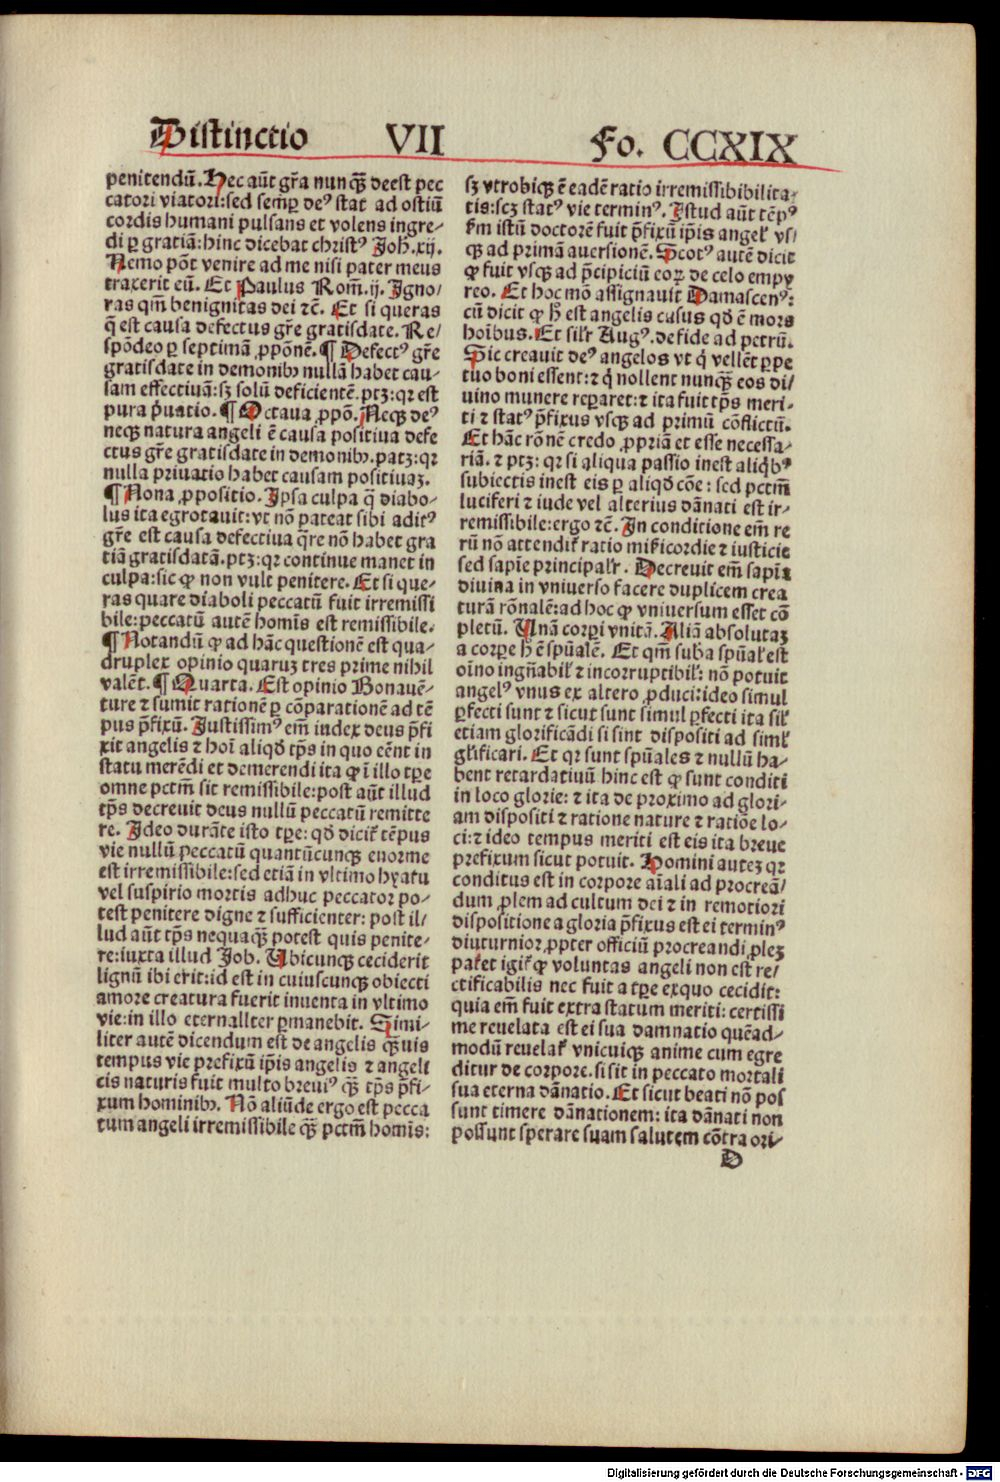 Distinctio VII Fo. CCXIX
penitendū. Hec aūt gr̄a nunq̄ꝫ deest pec
catori viatori: sed semꝑ deꝰ stat ad ostiū
cordis humani pulsans et volens ingre-
di ꝑ gratiā: hinc dicebat christꝰ Joh̄. xij.
Nemo pōt venire ad me nisi pater meus
traxerit eū. Et Paulus Rom̄. ij. Igno/
ras qm̄ benignitas dei ⁊c̄. Et si queras
q̄ est causa defectus gr̄e gratisdate. Re/
spōdeo ꝑ septimā ꝓpōnē. ¶ Defectꝰ gr̄e
gratisdate in demonibꝫ nullā habet cau-
sam effectiuā: sꝫ solū deficientē. ptꝫ: qꝛ est
pura p̄uatio. ¶ Octaua ꝓpō. Neqꝫ deꝰ
neqꝫ natura angeli ē causa positiua defe
ctus gr̄e gratisdate in demonibꝫ. patꝫ: qꝛ
nulla priuatio habet causam positiuaꝫ.
¶ Nona ꝓpositio. Ipsa culpa q̄ diabo-
lus ita egrotauit: vt nō pateat sibi aditꝰ
gr̄e est causa defectiua q̄re nō habet gra
tiā gratisdatā. ptꝫ: qꝛ continue manet in
culpa: sic ꝙ non vult penitere. Et si que/
ras quare diaboli peccatū fuit irremissi
bile: peccatū autē homīs est remissibile.
¶ Notandū ꝙ ad hāc questionē est qua-
druplex opinio quaruꝫ tres prime nihil
valēt. ¶ Quarta. Est opinio Bonauē-
ture ⁊ sumit rationē ꝑ cōparationē ad tē
pus p̄fixū. Justissimꝰ em̄ iudex deus p̄fi
xit angelis ⁊ hoī aliqd̄ tp̄s in quo eēnt in
statu merēdi et demerendi ita ꝙ ī illo tꝑe
omne pctm̄ sit remissibile: post aūt illud
tp̄s decreuit deus nullū peccatū remitte
re. Ideo durāte isto tꝑe: qd̄ dicit̄ tēpus
vie nullū peccatū quantūcunqꝫ enorme
est irremissibile: sed etiā in vltimo hyatu
vel suspirio mortis adhuc peccator po-
test penitere digne ⁊ sufficienter: post il/
lud aūt tp̄s nequaq̄ꝫ potest quis penite-
re: iuxta illud Job. Ubicunqꝫ ceciderit
lignū ibi erit: id est in cuiuscunqꝫ obiecti
amore creatura fuerit inuenta in vltimo
vie: in illo eternallter ꝑmanebit. Simi/
liter autē dicendum est de angelis q̄ꝫuis
tempus vie prefixū ip̄is angelis ⁊ angeli
cis naturis fuit multo breuiꝰ q̄ꝫ tp̄s p̄fi-
xum hominibꝫ. Nō aliūde ergo est pecca
tum angeli irremissibile q̄ꝫ pctm̄ homīs:
sꝫ vtrobiqꝫ ē eadē ratio irremissibibilita-
tis: scꝫ statꝰ vie terminꝰ. Istud aūt tēpꝰ
fm istū doctorē fuit p̄fixū ip̄is angel̄ vs/
qꝫ ad primā auersionē. Scotꝰ autē dicit
ꝙ fuit vsqꝫ ad p̄cipiciū coꝝ de celo empy
reo. Et hoc mō assignauit Damascenꝰ:
cū dicit ꝙ h̄ est angelis casus qd̄ ē mors
hoībus. Et sil̄r Augꝰ. de fide ad petrū.
Sic creauit deꝰ angelos vt q̄ vellēt ꝑpe
tuo boni essent: ⁊ q̄ nollent nunq̄ꝫ eos di/
uino munere reparet: ⁊ ita fuit tp̄s meri-
ti ⁊ statꝰ p̄fixus vsqꝫ ad primū cōflictū.
Et hāc rōnē credo ꝓpriā et esse necessa/
riā. ⁊ ptꝫ: qꝛ si aliqua passio inest aliqb̄ꝰ
subiectis inest eis ꝑ aliqd̄ cōe: sed pctm̄
luciferi ⁊ iude vel alterius dānati est ir-
remissibile: ergo ⁊c̄. In conditione em̄ re
rū nō attendit̄ ratio mīcordie ⁊ iusticie
sed sapīe principal̄r. Decreuit em̄ sapīa
diuina in vniuerso facere duplicem crea
turā rōnalē: ad hoc ꝙ vniuersum esset cō
pletū. Unā corꝑi vnitā. Aliā absolutaꝫ
a corꝑe h̄ ē spūalē. Et qm̄ suba spūal̄ est
oīno ingn̄abil̄ ⁊ incorruptibil̄: nō potuit
angelꝰ vnus ex altero ꝓduci: ideo simul
ꝑfecti sunt ⁊ sicut sunt simul ꝑfecti ita sil̄
etiam glorificādi si sint dispositi ad simul̄
gl̄ificari. Et qꝛ sunt spūales ⁊ nullū ha-
bent retardatiuū hinc est ꝙ sunt conditi
in loco glorie: ⁊ ita de proximo ad glori-
am dispositi ⁊ ratione nature ⁊ ratiōe lo-
ci: ⁊ ideo tempus meriti est eis ita breue
prefixum sicut potuit. Homini auteꝫ qꝛ
conditus est in corpore aīali ad procreā/
dum ꝓlem ad cultum dei ⁊ in remotiori
dispositione a gloria p̄fixus est ei terminꝰ
diuturnior ꝓpter officiū procreandi ꝓleꝫ
patet igit̄ ꝙ voluntas angeli non est re/
ctificabilis nec fuit a tꝑe exquo cecidit:
quia em̄ fuit extra statum meriti: certissi
me reuelata est ei sua damnatio quēad-
modū reuelat̄ vnicuiqꝫ anime cum egre
ditur de corpore. si sit in peccato mortali
sua eterna dānatio. Et sicut beati nō pos
sunt timere dānationem: ita dānati non
possunt sperare suam salutem cōtra ori-
D
Digitalisierung gefördert durch die Deutsche Forschungsgemeinschaft - DFG